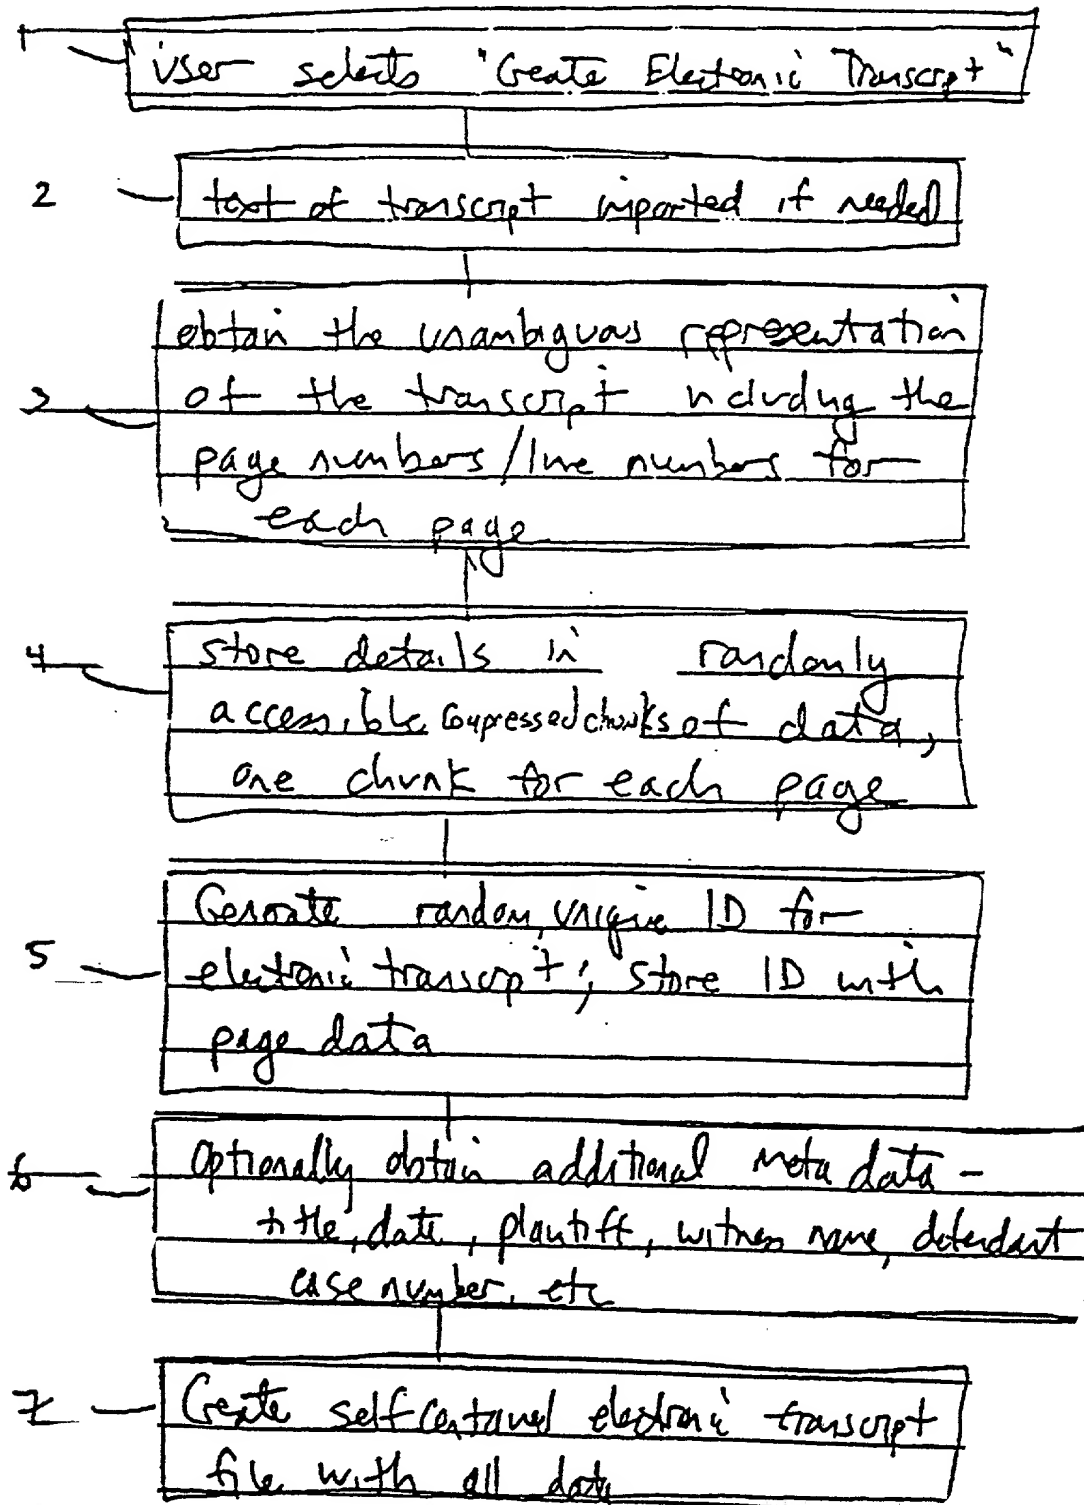 1
User selects "Create Electronic Transcript"
2
text of transcript imported if needed
obtain the unambiguous representation
3
of the transcript including the
page numbers/line numbers for
each page
4
store details in randomly
accessible compressed chunks of data,
one chunk for each page
Generate random, unique ID for
5
electronic transcript; store ID with
page data
6
Optionally obtain additional meta data -
title, date, plaintiff, witness name, defendant
case number, etc
7
Create self contained electronic transcript
file with all data